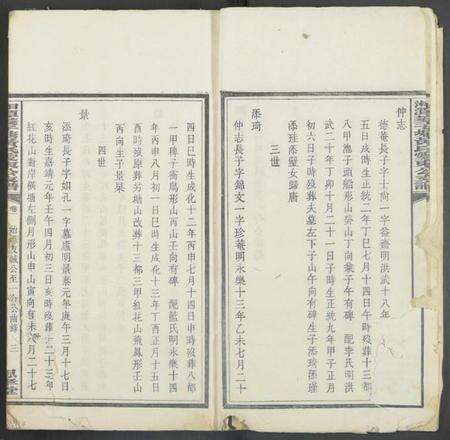 仲志
德菴長子字士尚一字益齋明洪武十八年
五日戌時生正統二年丁巳七月十四日午時歿葬十三都
八甲池子頭船形山癸山丁向葉子午有碑 配李氏明洪
武二十年丁卯十月二十一日子時生正統九年甲子正月
初六日子時歿葬夫墓左下子山午向有碑生子添琦添瑾
添珪添璧女歸唐
三世
添琦
仲志長子字錦文一字珍菴明永樂十三年乙未七月二十
四日巳時生成化十二年丙申七月十四日申時歿葬八都
一甲稗子衝鳥形山丙山壬向有碑 配藍氏明永樂十四
年丙申八月初一日巳時生成化十三年丁酉正月十五日
酉時歿原葬芳塘山改葬十三都三甲紅花山飛鳳形壬山
丙向生子景杲
四世
景
添琦長子字如孔一字墓盧明景泰元年庚午三月十七日
亥時生嘉靖元年壬午四月初三日亥時歿葬十三都三甲
紅花山對岸橫塘左側月形山申山寅向有 八月二十七